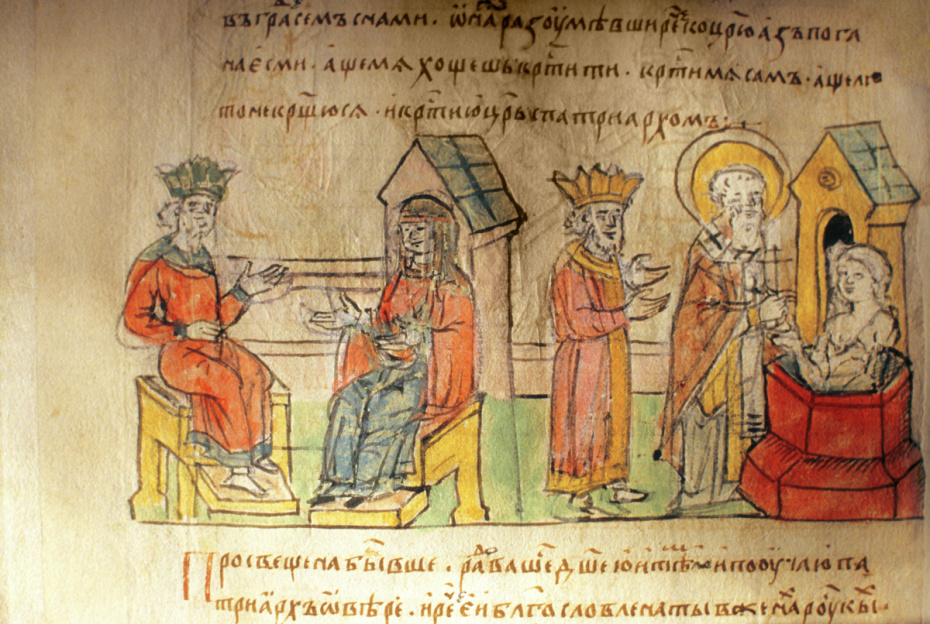 въграсемъснами · ѡнаразоумѣвширечекоцр҃юазъпога
наєсми · ащемѧхощешькр҃тити · кр҃тимѧсамъ · ащели
тонекрщюсѧ · икр҃тиюцр҃ьспатриархомъ ·
Просвещенабывше · радовашесѧдш҃ею и поучлюпа
триархъѡвѣре · иречеиблг҃ословленатывженарускы